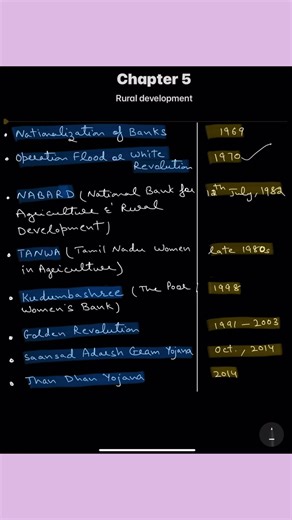 Chapter 5
Rural development
• Nationalization of Banks 1969
• Operation Flood or White 1970
Revolution
• NABARD (National Bank for 12th July, 1982
Agriculture & Rural
Development)
• TANWA (Tamil Nadu Women late 1980s
in Agriculture)
• Kudumbashree (The Poor 1998
Women's Bank)
• Golden Revolution 1991-2003
• Saansad Adarsh Gram Yojana Oct., 2014
• Jhan Dhan Yojana 2014